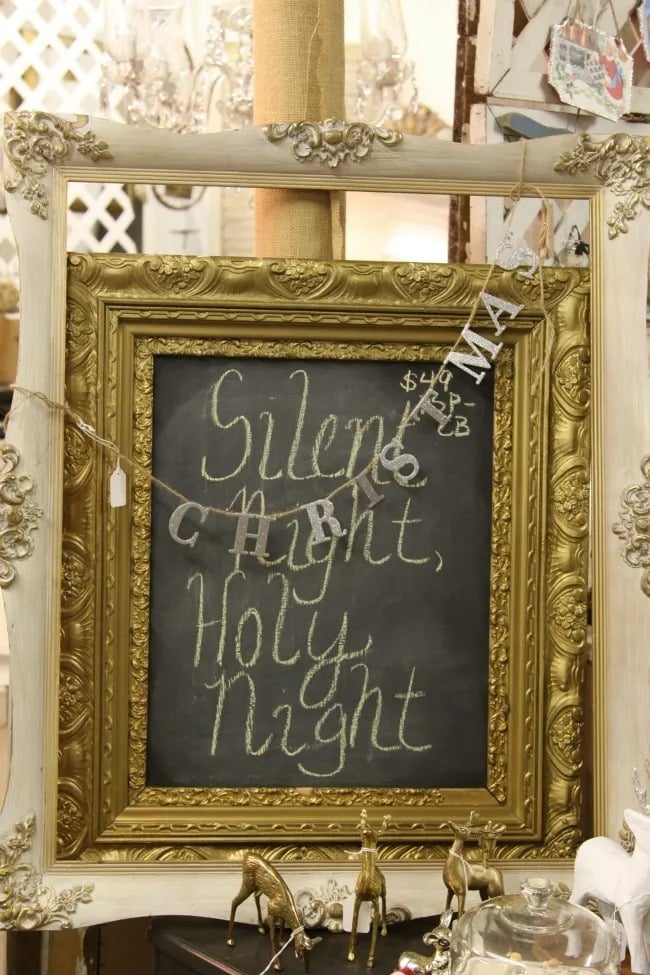 $49
BP-
CB
Silent
Night,
Holy
Night
CHRISTMAS